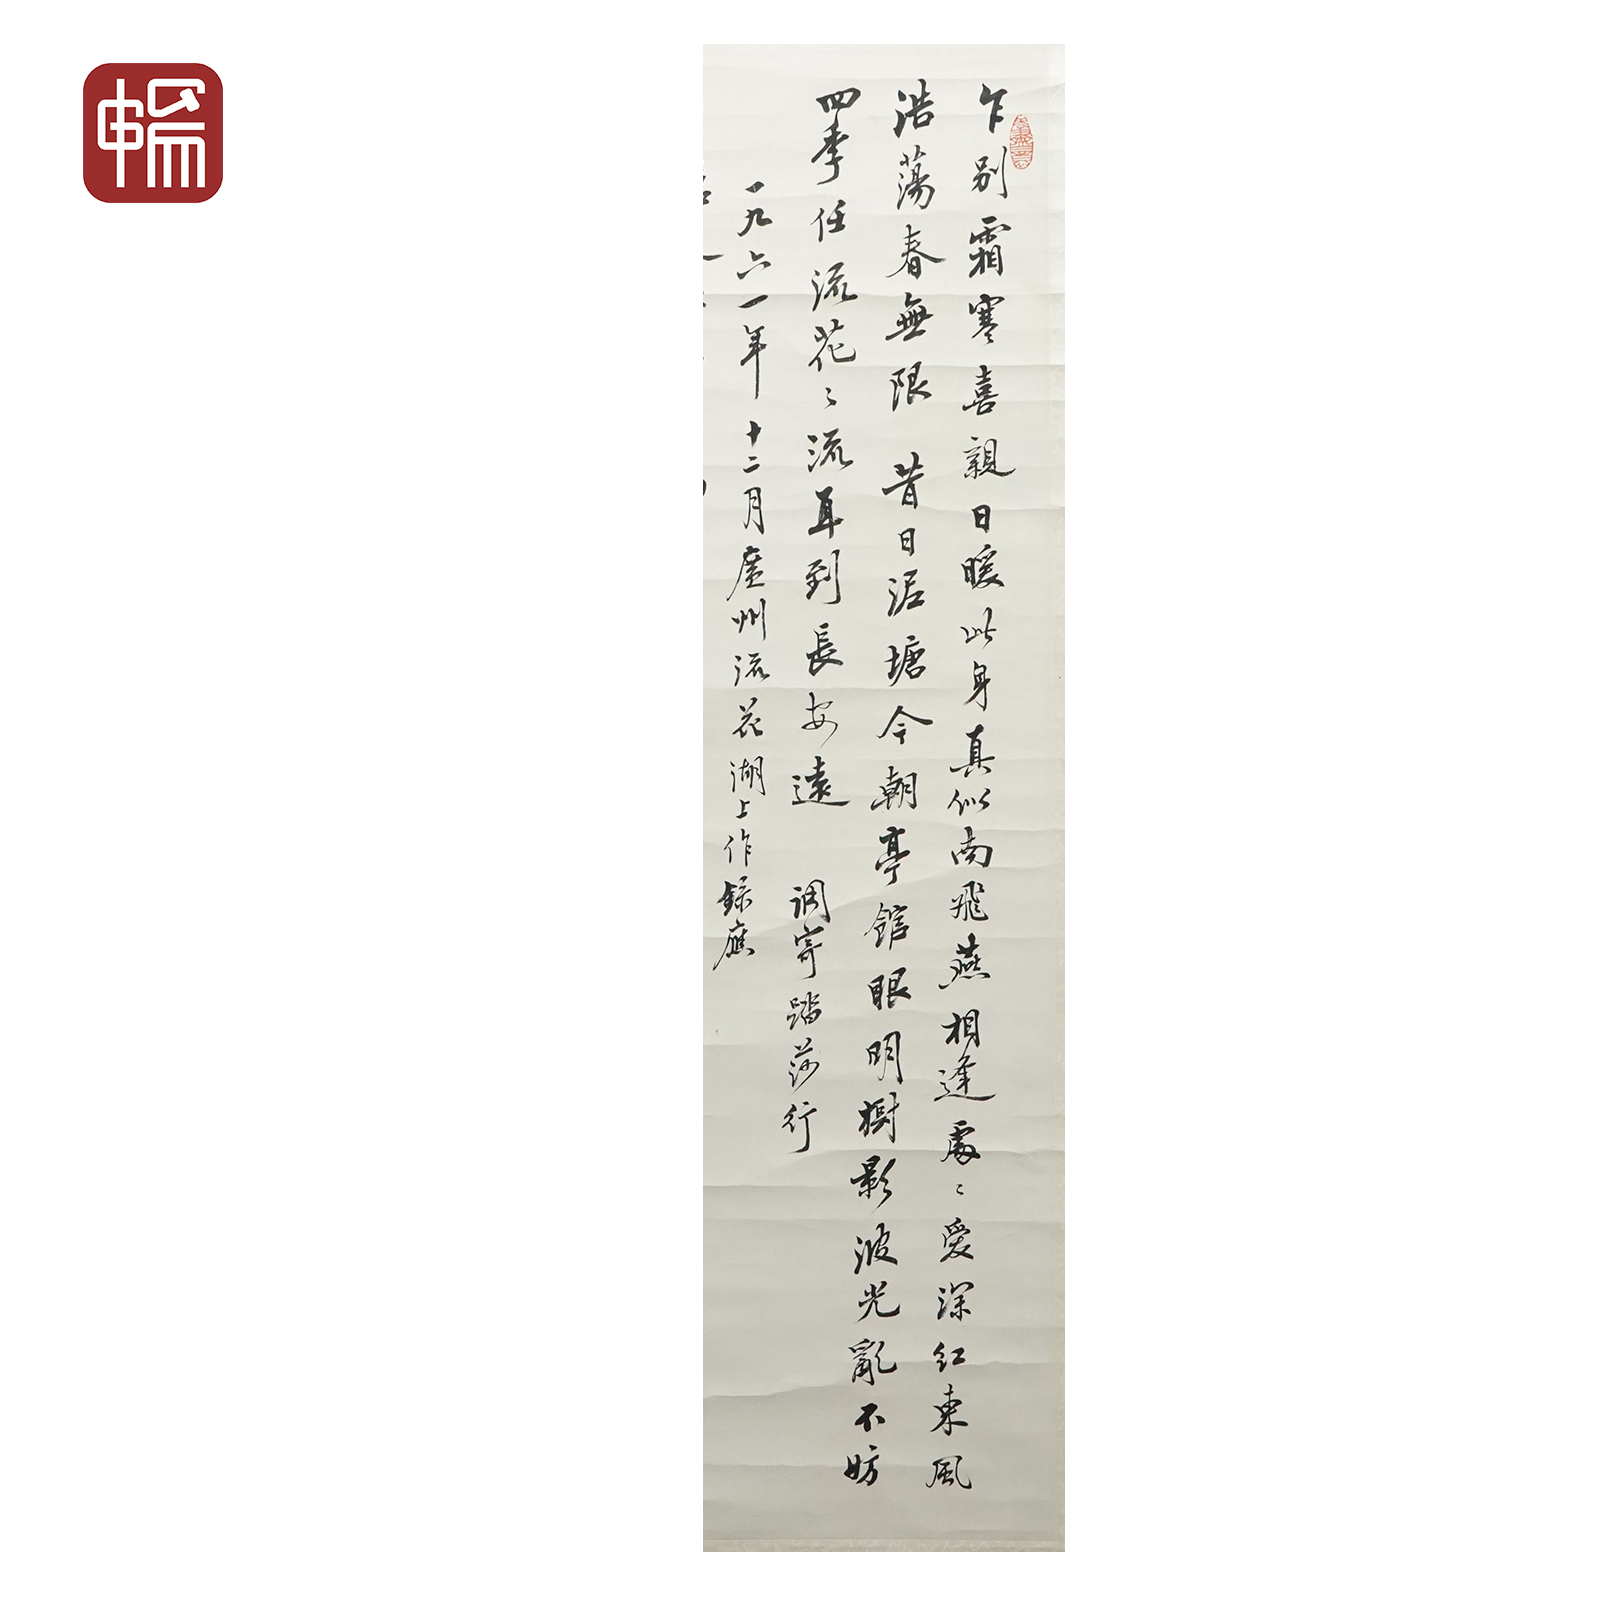 乍别霜寒喜親日暖此身真似南飛燕相逢處〻愛深红東風
浩蕩春無限 昔日泥塘今朝亭館眼明樹影波光亂不妨
四季任流花〻流耳到長安遠 调寄踏莎行
一九六一年十二月廣州流花湖上作録應